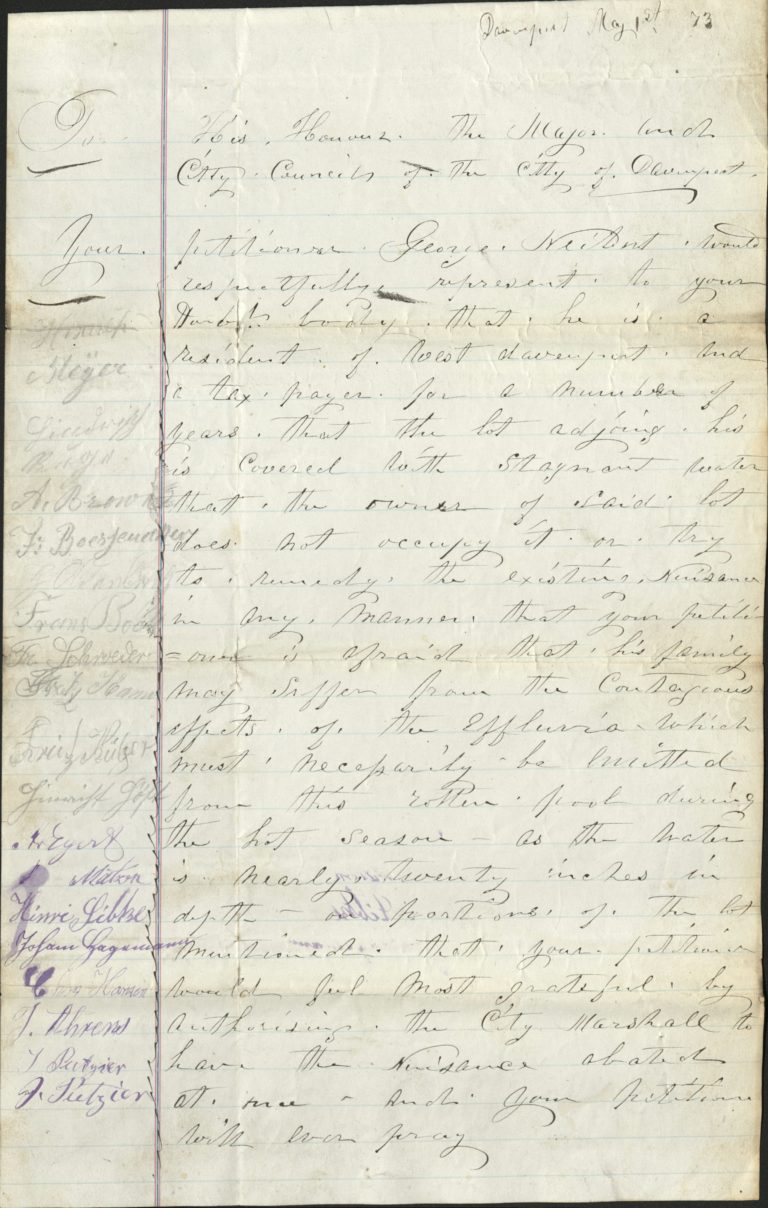 Davenport May 1st 73
To His Honour the Major and
City Councils of the City of Davenport.
Your petitioner George would
respectfully represent to your
Honbl body that he is a
resident of West davenport and
a tax payer for a number of
years that the lot adjoing his
is Covered With Stagnant water
that the owner of said lot
does not occupy it or try
to remedy the existing Nuisance
in any manner that your petiti
=oner is afraid that his family
may Suffer from the Contagious
effects of the Effluvia which
must necessarily be Emitted
from this rotten pool during
the hot Season – as the water
is nearly twenty inches in
depth – on portions of the lot
mentioned that your petitioner
would feel most grateful by
Authorising the City Marshall to
have the Nuisance abated
at once – and your petitioner
will ever pray
Hinrich
Meÿer
A. Brown
Frans
Fr. Schroeder
Fritz
Hinrich
Hinri Libke
Joham Hagamann
Hansen
J. Ahrens
J Putzier
J. Putzier